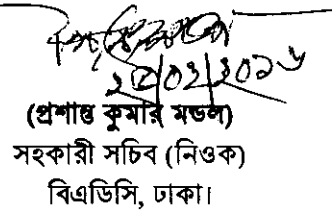 ২৫/০২/২০১৬
(প্রশান্ত কুমার মন্ডল)
সহকারী সচিব (নিওক)
বিএডিসি, ঢাকা।